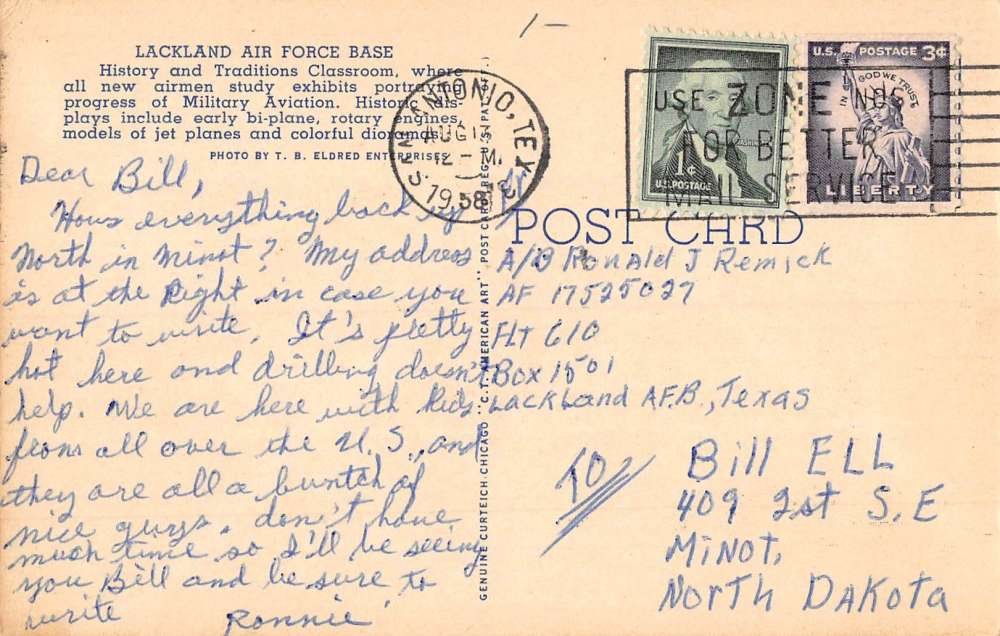 1-
LACKLAND AIR FORCE BASE
History and Traditions Classroom, where
all new airmen study exhibits portraying
progress of Military Aviation. History dis-
plays include early bi-plane, rotary engines,
models of jet planes and colorful dioramas.
PHOTO BY T. B. ELDRED ENTERPRISES
Dear Bill,
Hows everything back up
North in Minot? My address
is at the Right in case you
want to write. It's pretty
hot here and drilling doesn't
help. We are here with kids
from all over the U.S., and
they are all a buntch of
nice guys. don't have
much time so I'll be seeing
you Bill and be sure to
write
Ronnie
GENUINE CURTEICH-CHICAGO "C.T. AMERICAN ART" POST CARD (REG. U.S. PAT. OFF.)
SAN ANTONIO, TEX.
AUG 13
12 - M
1958
U.S. POSTAGE 3¢
IN GOD WE TRUST
LIBERTY
1¢
U.S. POSTAGE
USE ZONE NOS.
FOR BETTER
MAIL SERVICE
POST CARD
A/B Ronald J Remick
AF 17525027
FLT 610
Box 1501
Lackland A.F.B., Texas
TO
Bill ELL
409 2st S.E
MiNOT,
North Dakota